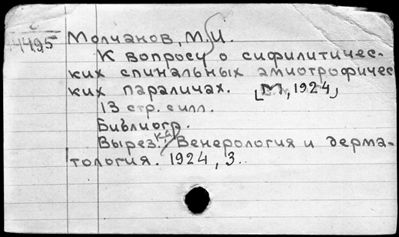 14495
Молчанов, М.И.
К вопросу о сифилитичес-
ких спинальных амиотрофичес
ких параличах. [М, 1924]
13 стр. силл.
Библиогр.
Вырез.: Венерология и дерма-
тология. 1924, 3.